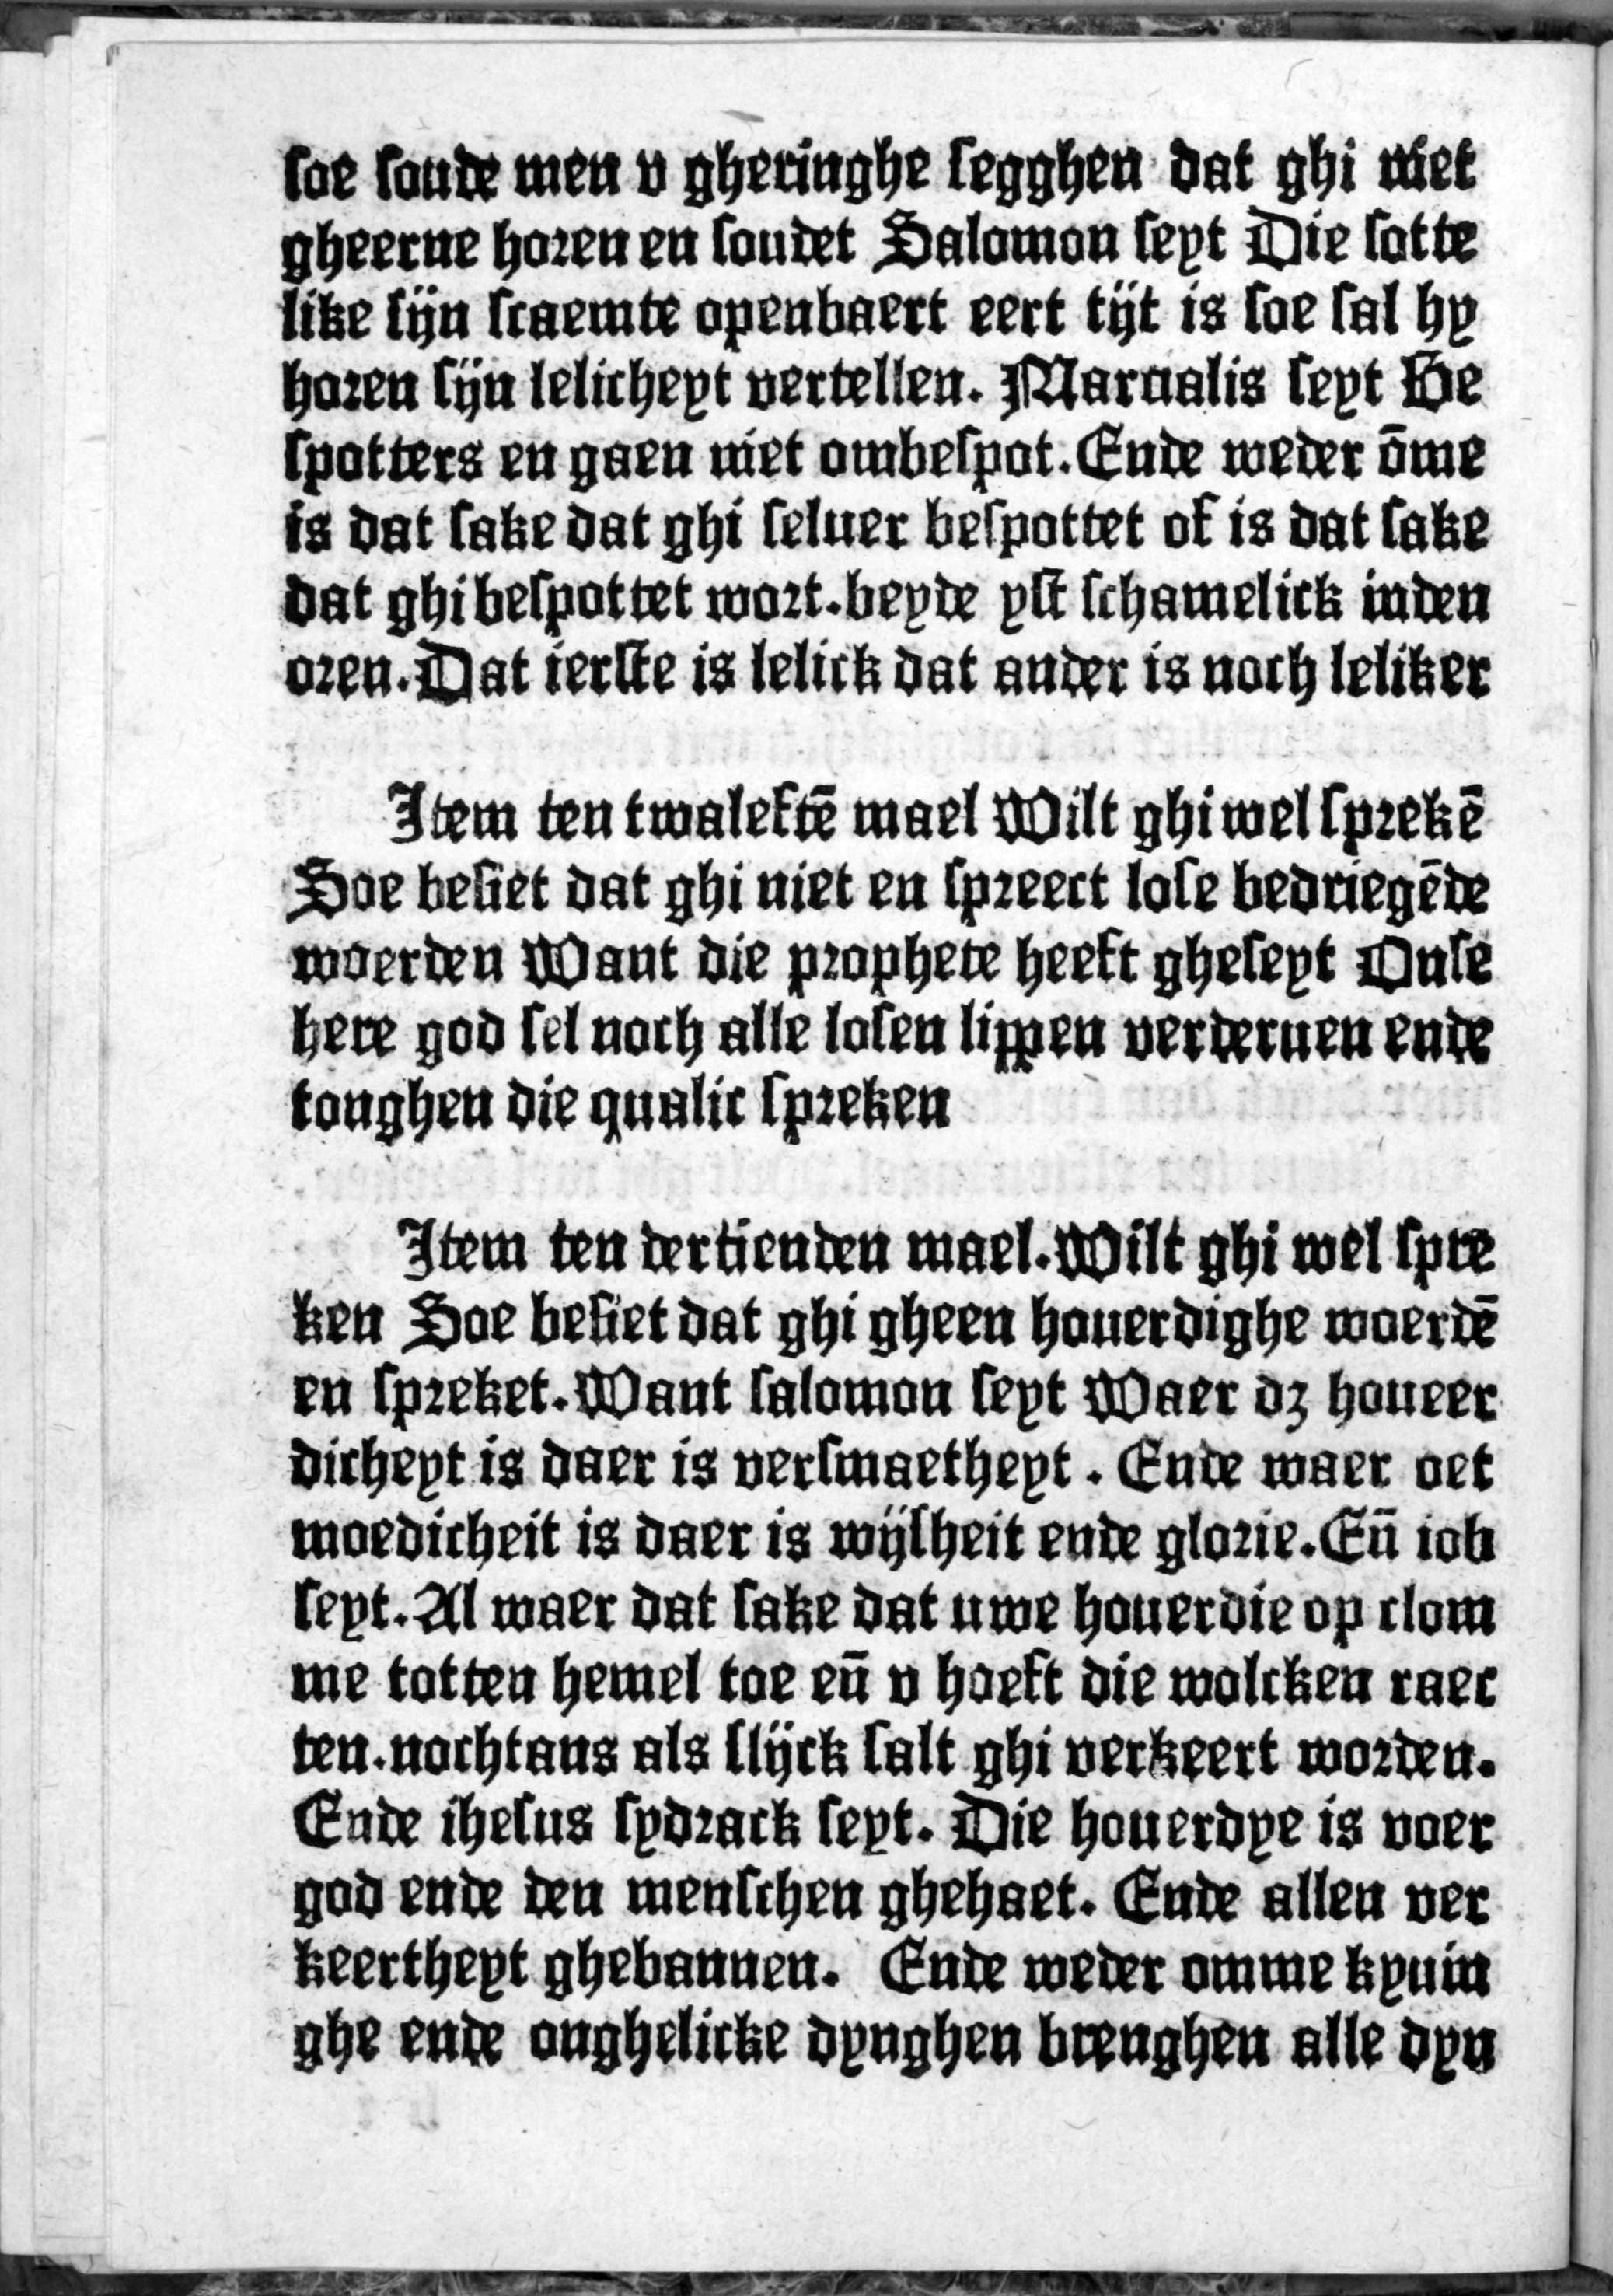 soe soude men v gheringhe segghen dat ghi niet
gheerne horen en soudet Salomon seyt Die sotte
like sijn scaemte openbaert eert tijt is soe sal hy
horen sijn lelicheyt vertellen. Marualis seyt Be
spotters en gaen niet ombespot. Ende weder ōme
is dat sake dat ghi seluer bespottet of is dat sake
dat ghi bespottet wort. beyde yst schamelick inden
oren. Dat ierste is lelick dat ander is noch leliker
Item ten twaleftē mael Wilt ghi wel sprekē
Soe besiet dat ghi niet en spreect lose bedriegēde
woerden Want die prophete heeft gheseyt Onse
here god sel noch alle losen lippen verderuen ende
tonghen die qualic spreken
Item ten dertienden mael. Wilt ghi wel spre
ken Soe besiet dat ghi gheen houerdighe woerdē
en spreket. Want salomon seyt Waer dz houeer
dicheyt is daer is versmaetheyt. Ende waer oet
moedicheit is daer is wijsheit ende glorie. Eñ iob
seyt. Al waer dat sake dat uwe houerdie op clom
me totten hemel toe eñ v hoeft die wolcken raec
ten. nochtans als slijck salt ghi verkeert worden.
Ende ihesus sydrack seyt. Die houerdye is voer
god ende den menschen ghehaet. Ende allen ver
keertheyt ghebannen. Ende weder omme kyuin
ghe ende onghelicke dynghen brenghen alle dyn